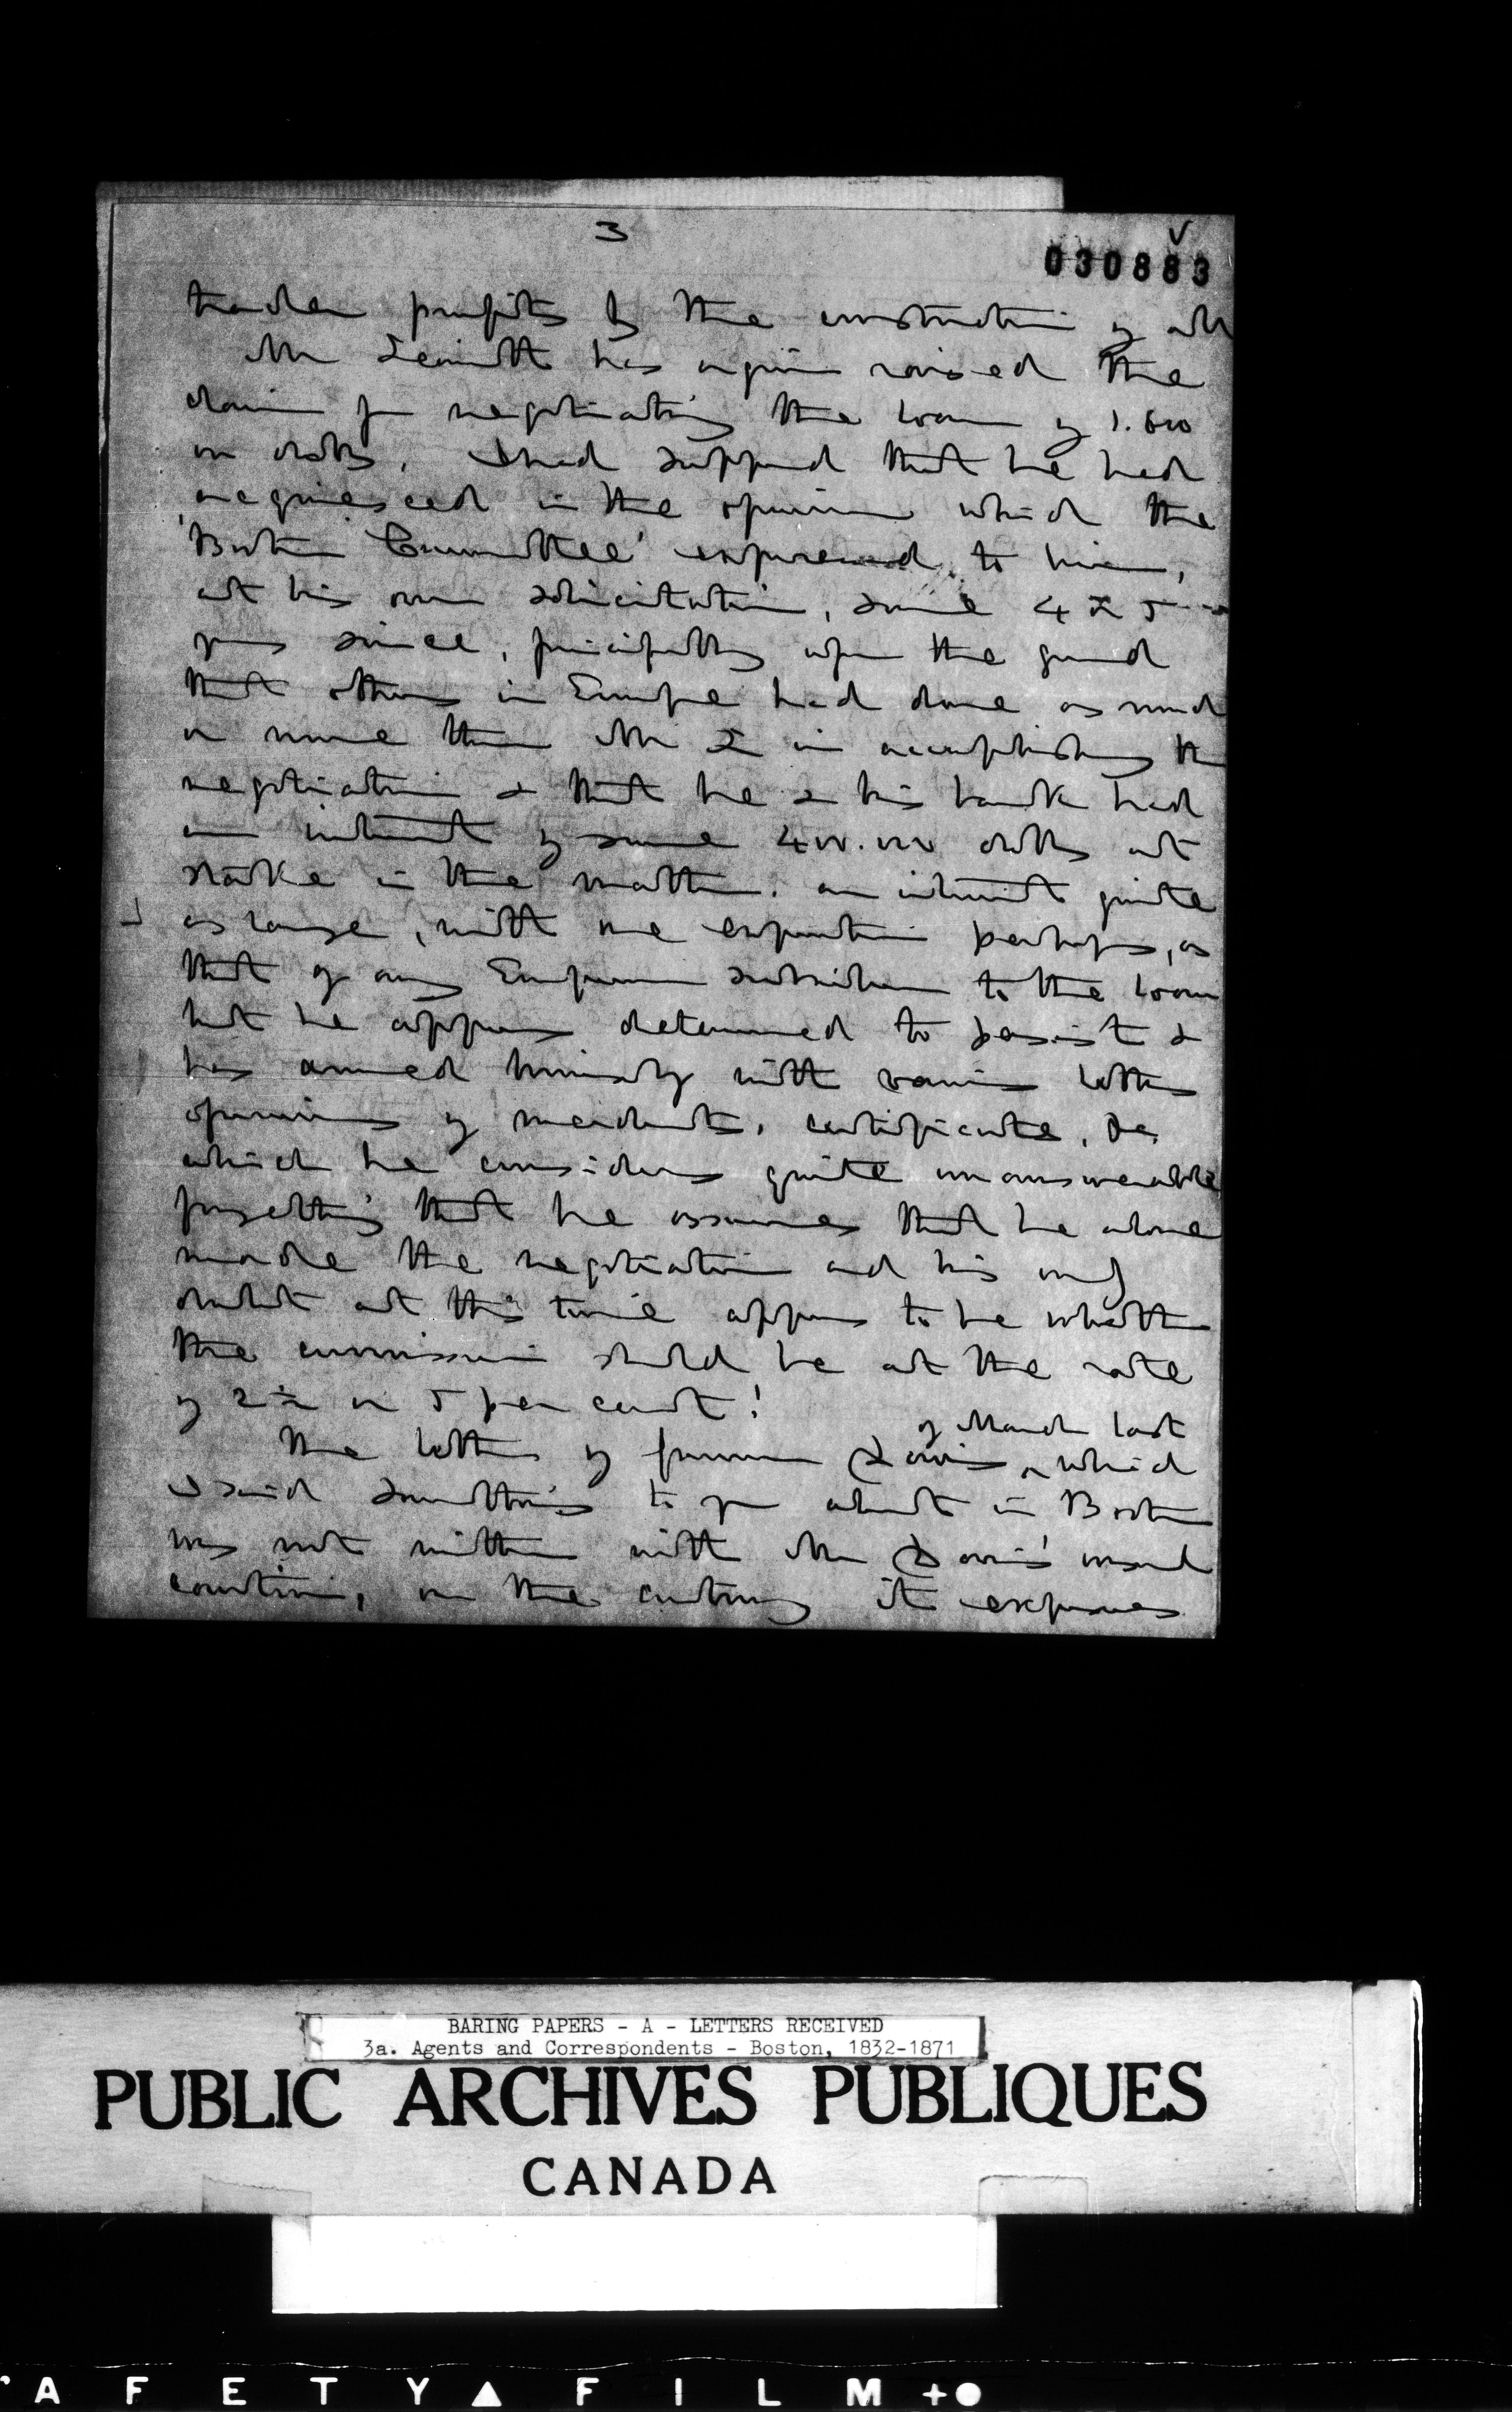 3
V
030883
trader profits by the construction of all
Mr Leavitt has again raised the
claim for negotiating the loan of 1.600
m dolls. I had supposed that he had
acquiesced in the opinion which the
'Boston Committee' expressed to him,
at his own solicitation, some 4 or 5
years since, principally upon the ground
that others in Europe had done as much
or more than Mr L in accomplishing the
negotiation & that he & his bank had
an interest of some 400.000 dolls at
stake in the matter. an interest quite
as large, with one exception perhaps, as
that of any European subscriber to the loan
but he appears determined to persist &
has armed himself with various letters
opinions of merchants, certificates, &c,
which he considers quite unanswerable
forgetting that he assumes that he alone
made the negotiation and his only
doubt at this time appears to be whether
the commission should be at the rate
of 2½ or 5 per cent!
of March last
The letter of Davis, which
I said something to you about in Boston
was not written with Mr Davis' usual
caution, on the contrary it expresses
BARING PAPERS - A - LETTERS RECEIVED
3a. Agents and Correspondents - Boston, 1832-1871
PUBLIC ARCHIVES PUBLIQUES
CANADA
AFETY▲FILM+●